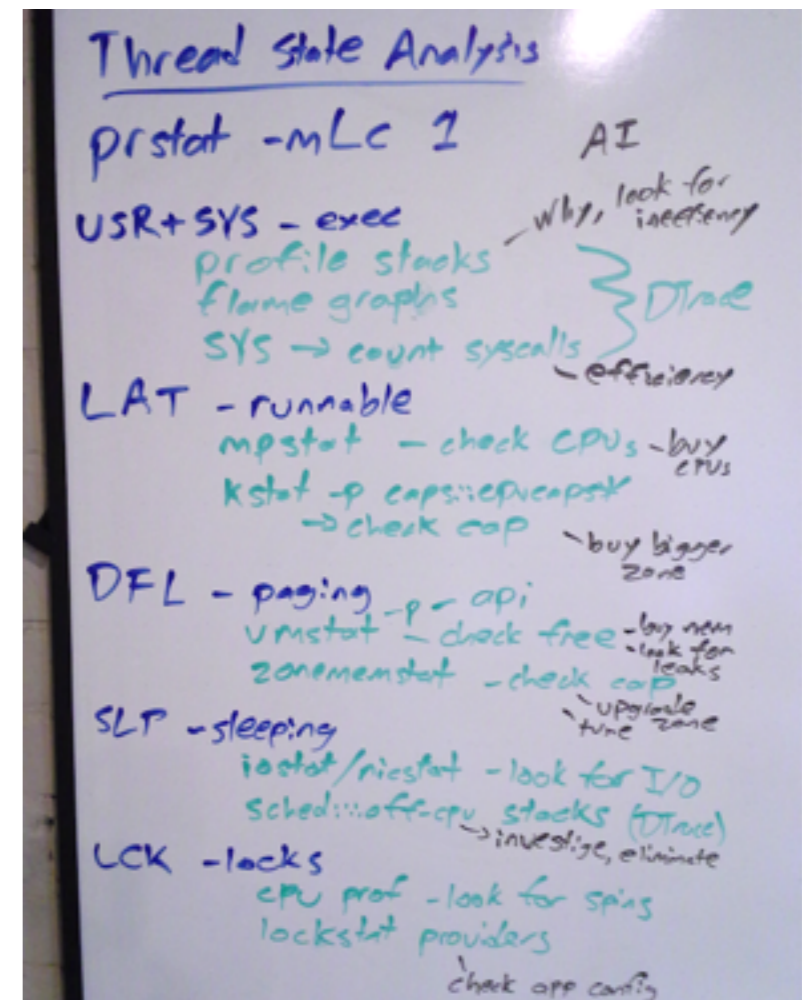 Thread State Analysis
prstat -mLc 1
AI
USR+SYS - exec
- Why, look for
ineffiency
profile stacks
flame graphs
DTrace
SYS → count syscalls
- efficiency
LAT - runnable
mpstat - check CPUs - buy
CPUs
kstat -p caps::cpucaps*
→ check cap
- buy bigger
zone
DFL - paging
-p - api
vmstat - check free - buy mem
- look for
leaks
zonememstat - check cap
- upgrade
zone
- tune
SLP - sleeping
iostat/nicstat - look for I/O
sched:::off-cpu stacks (DTrace)
→ investige, eliminate
LCK - locks
cpu prof - look for spins
lockstat providers
\ check app config